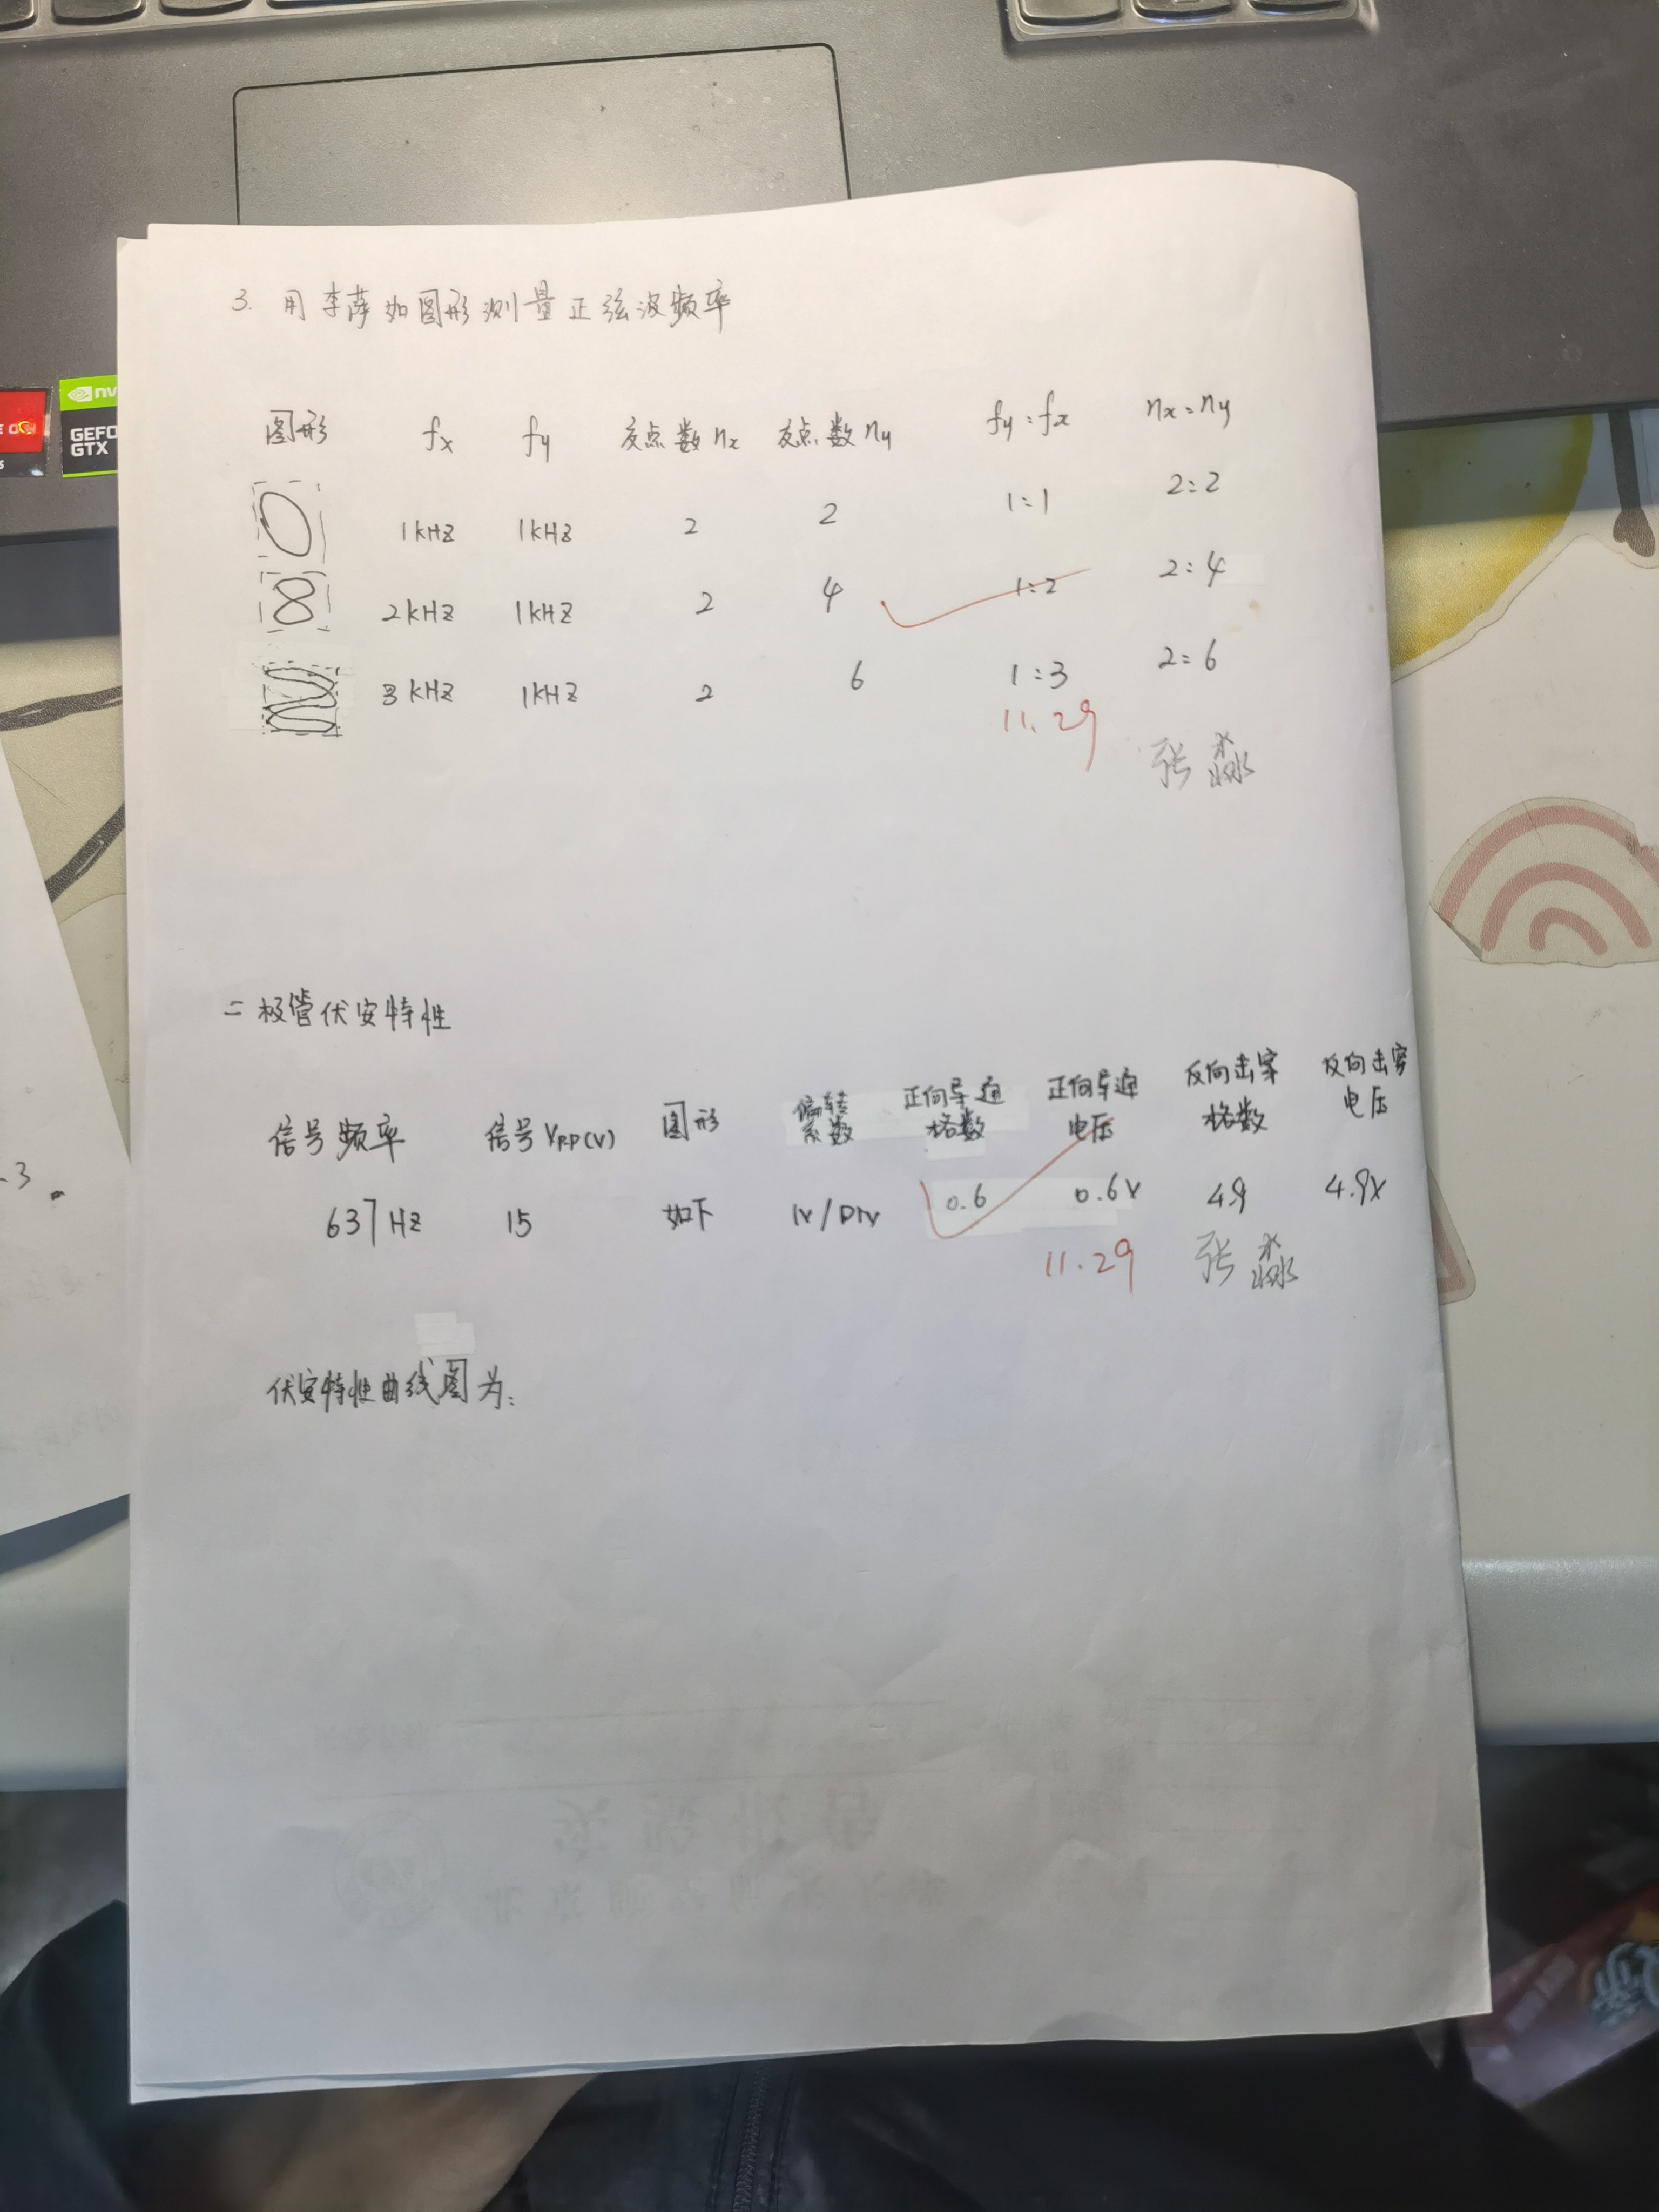 3. 用李萨如图形测量正弦波频率
图形 fx fy 交点数nx 交点数ny fy:fx nx:ny
1kHz 1kHz 2 2 1:1 2:2
2kHz 1kHz 2 4 1:2 2:4
3kHz 1kHz 2 6 1:3 2:6
11.29
张淼
二极管伏安特性
信号频率 信号VPP(V) 图形 偏转系数 正向导通格数 正向导通电压 反向击穿格数 反向击穿电压
637Hz 15 如下 1V/DIV 0.6 0.6V 4.9 4.9V
11.29 张淼
伏安特性曲线图为:
GEFO
GTX